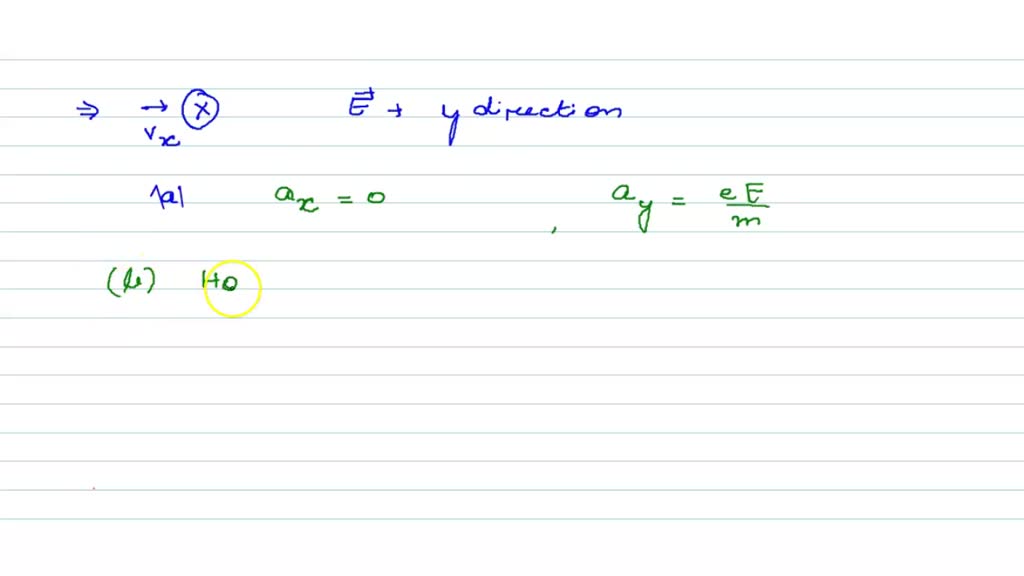 ⇒ →vₓ (X) E⃗ → y direction
(a) aₓ = 0 , a_y = eE/m
(b) Ho